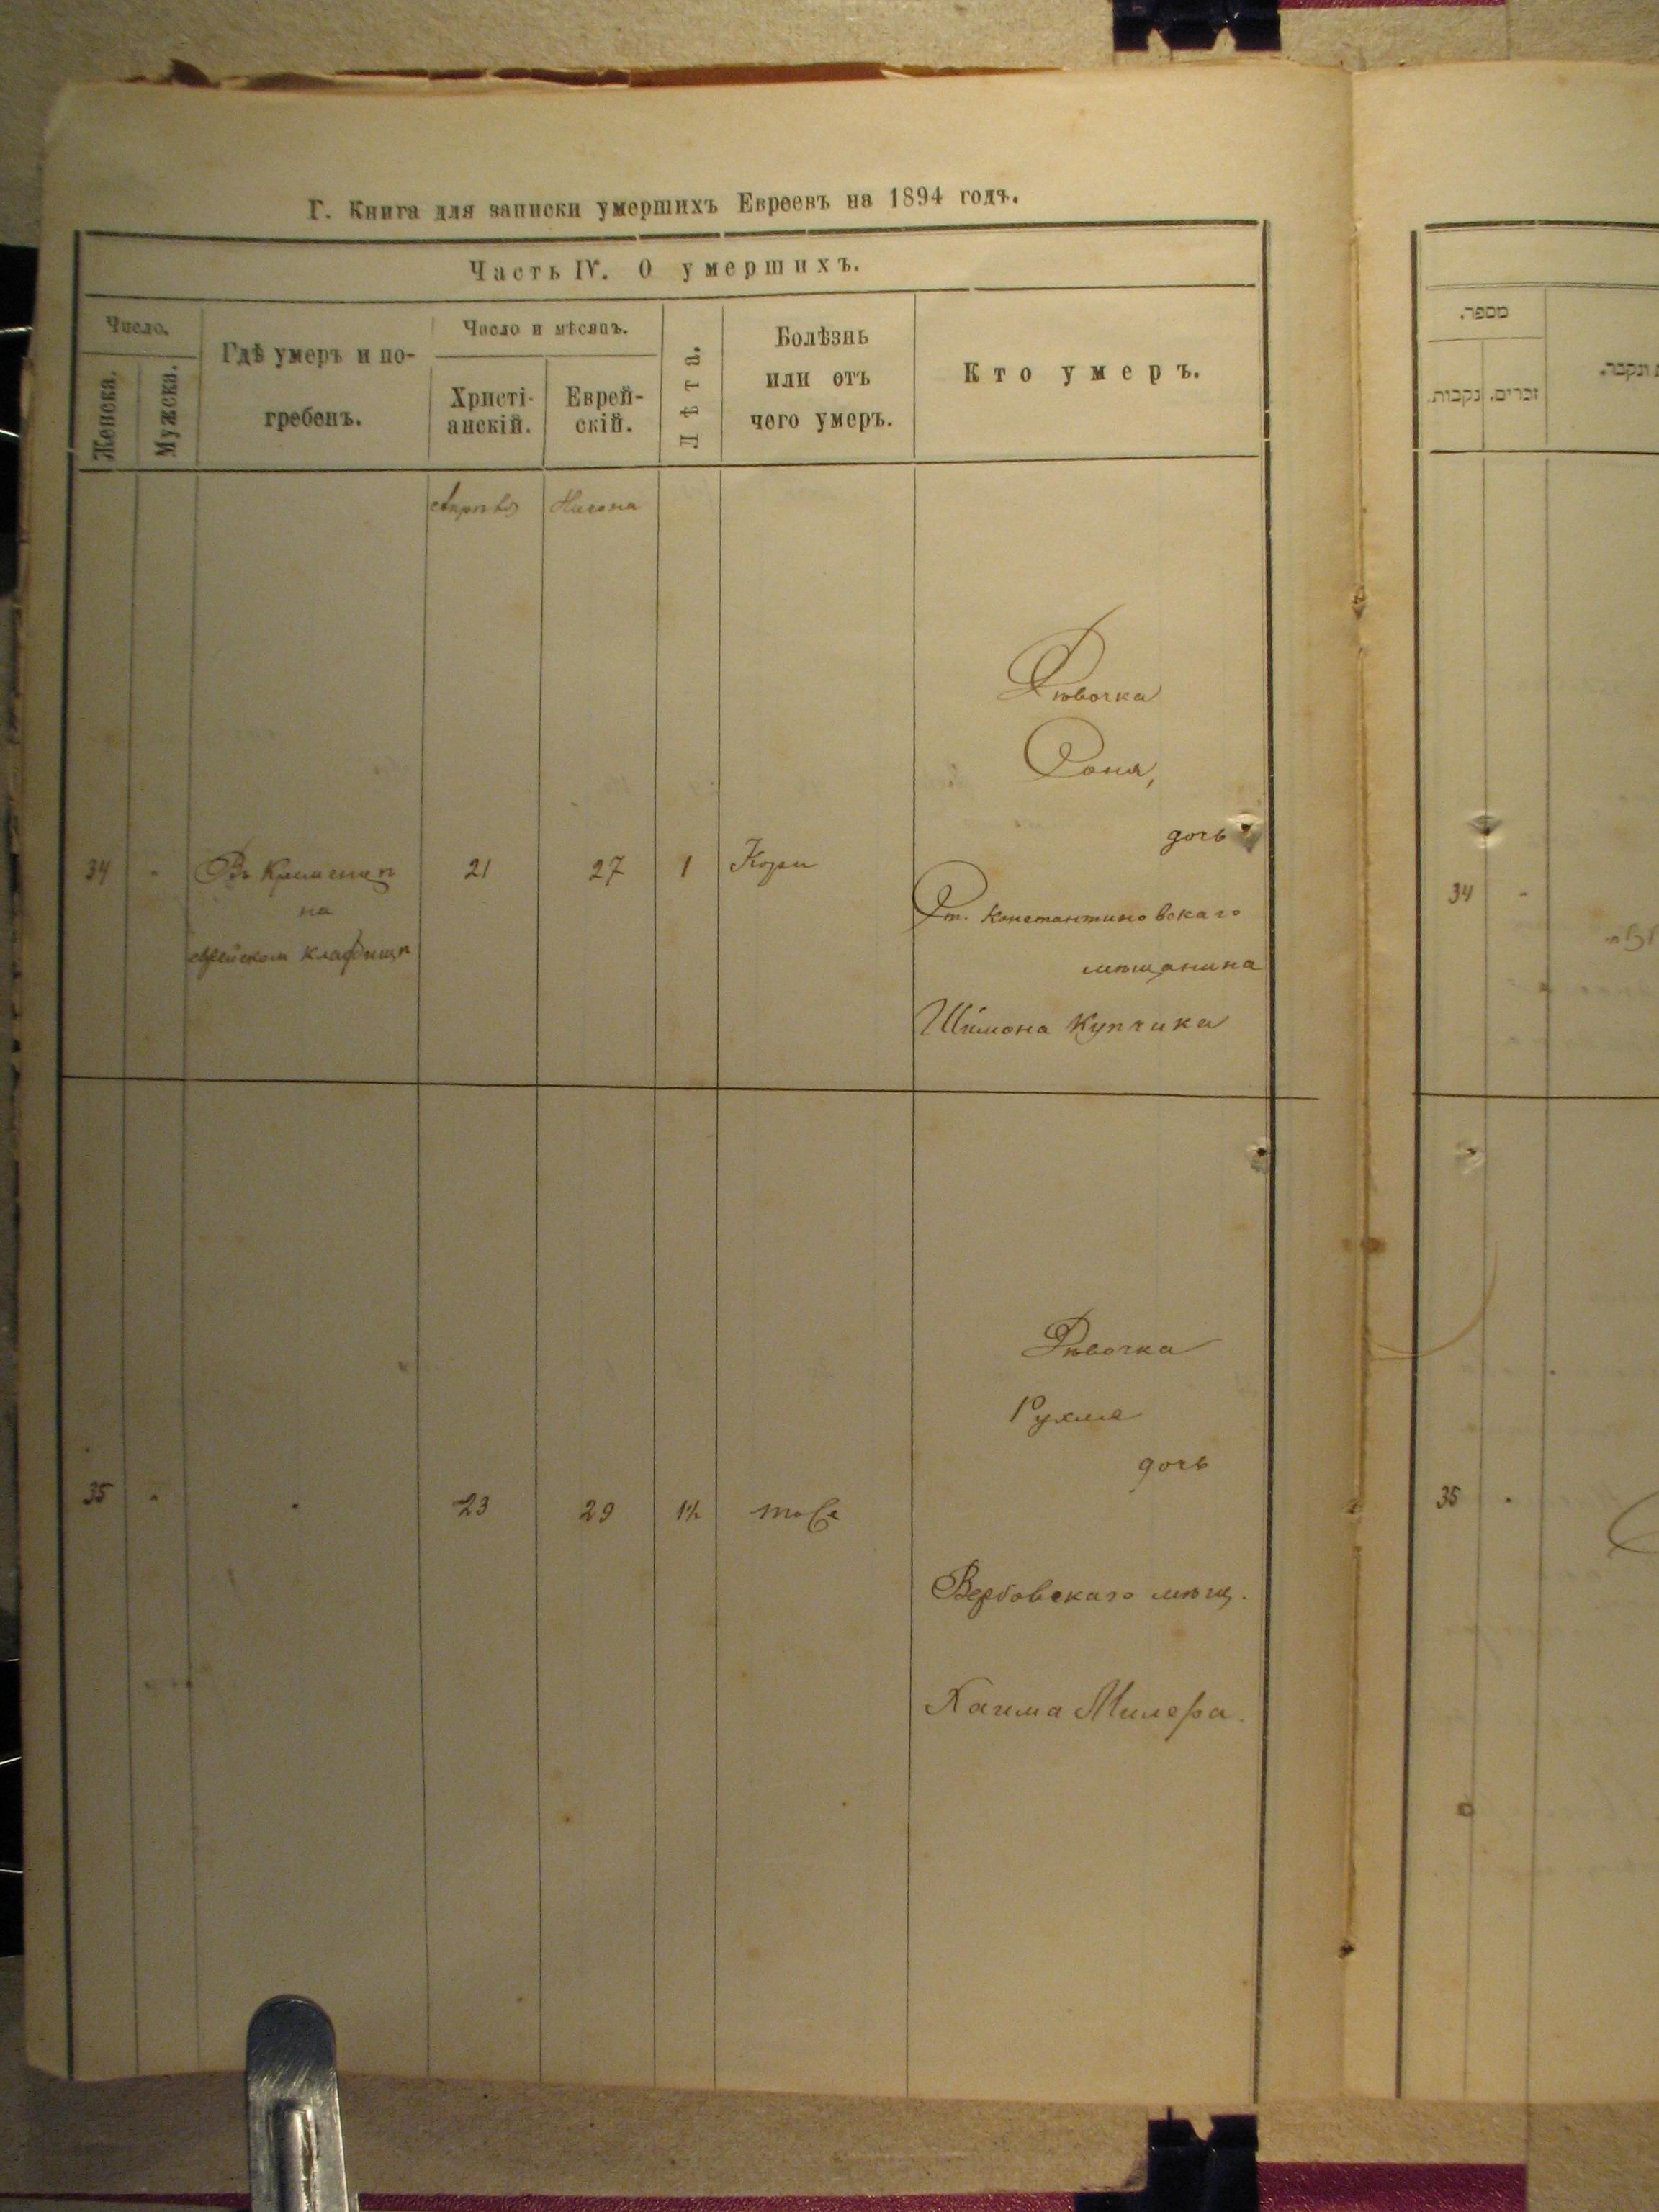 Г. Книга для записки умершихъ Евреевъ на 1894 годъ.
Часть IV. О умершихъ.
Число.
Женска.
Мужска.
Гдѣ умеръ и по-
гребенъ.
Число и мѣсяцъ.
Христі-
анскій.
Еврей-
скій.
Лѣта.
Болѣзнь
или отъ
чего умеръ.
Кто умеръ.
Нисона
Дѣвочка
Соня,
дочь
34 Въ Кременцѣ 21 27 1 Кори
на
еврейском кладбищѣ
Ст. Константиновскаго
мѣщанина
Шимона Купчика
Дѣвочка
Рухля
дочь
35 23 29 1½
Вербовскаго мѣщ.
Хаима Милера.
מספר.
זכרים.
נקבות.
ונקבר.
34
35